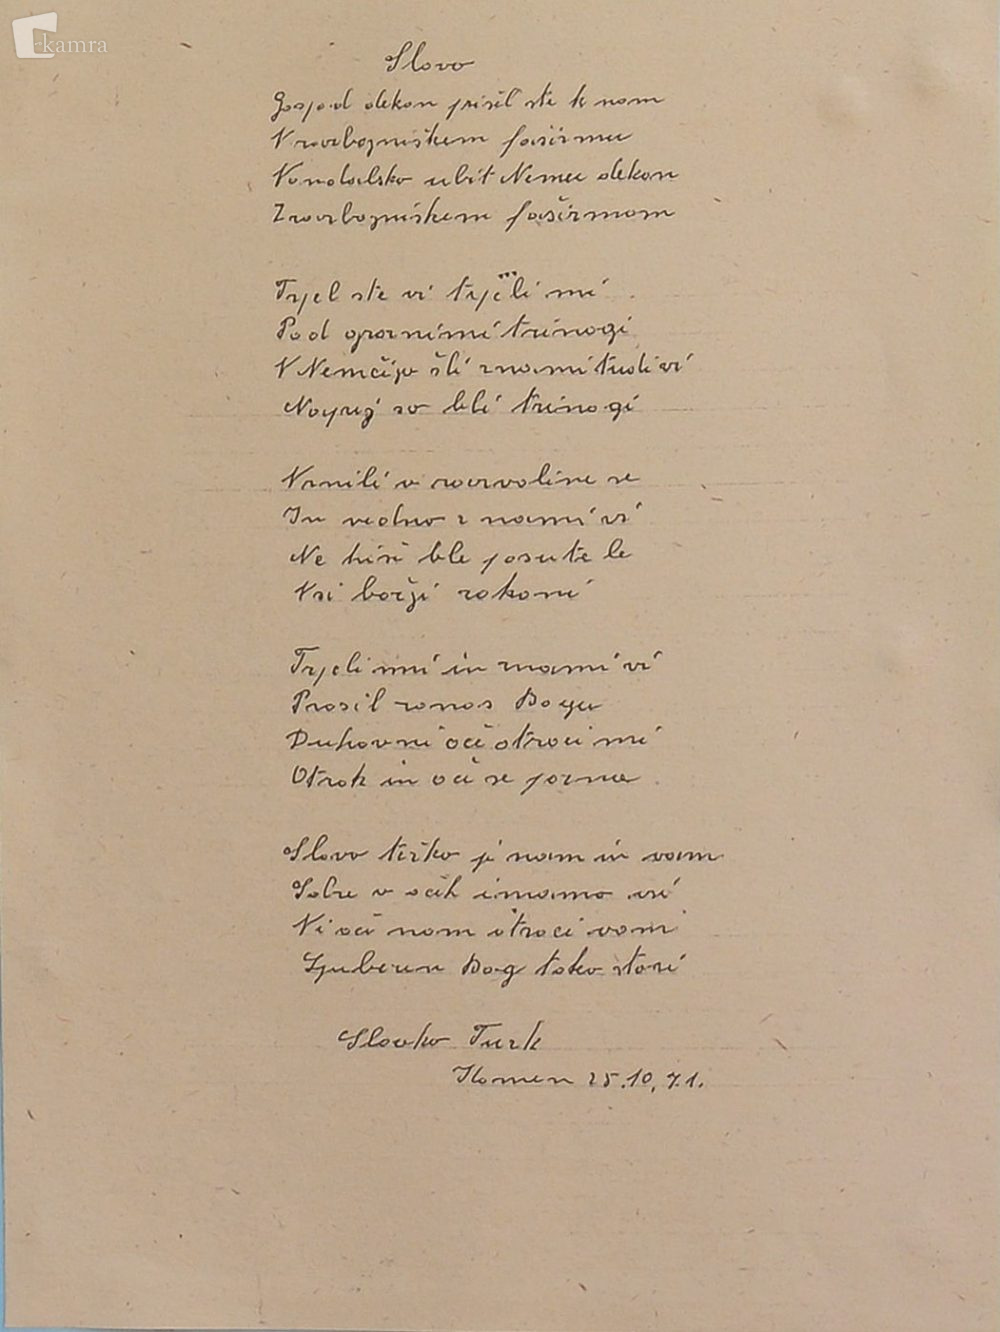 kamra
Slovo
Gospod dekan prišil ste k nam
V razbojniškem fašizmu
Vandalsko ubit Nemu dekan
Z razbojniškem fašizmom
Trpel ste vi trpeli mi
Pod groznimi trinogi
V Nemčijo šli z nami tudi vi
Naprej so bli trinogi
Vrnili v razvaline se
In vedno z nami vi
Ne hiše ble posute le
Vsi božji zakoni
Trpeli mi in z nami vi
Prosil za nas Boga
Duhovni oče otroci mi
Otrok in oče se pozna
Slovo težko je nam in vam
Solze v očeh imamo vsi
Vi oče nam otroci vam
Ljubezen Bog tako stori
Slavko Turk
Komen 25.10.71.